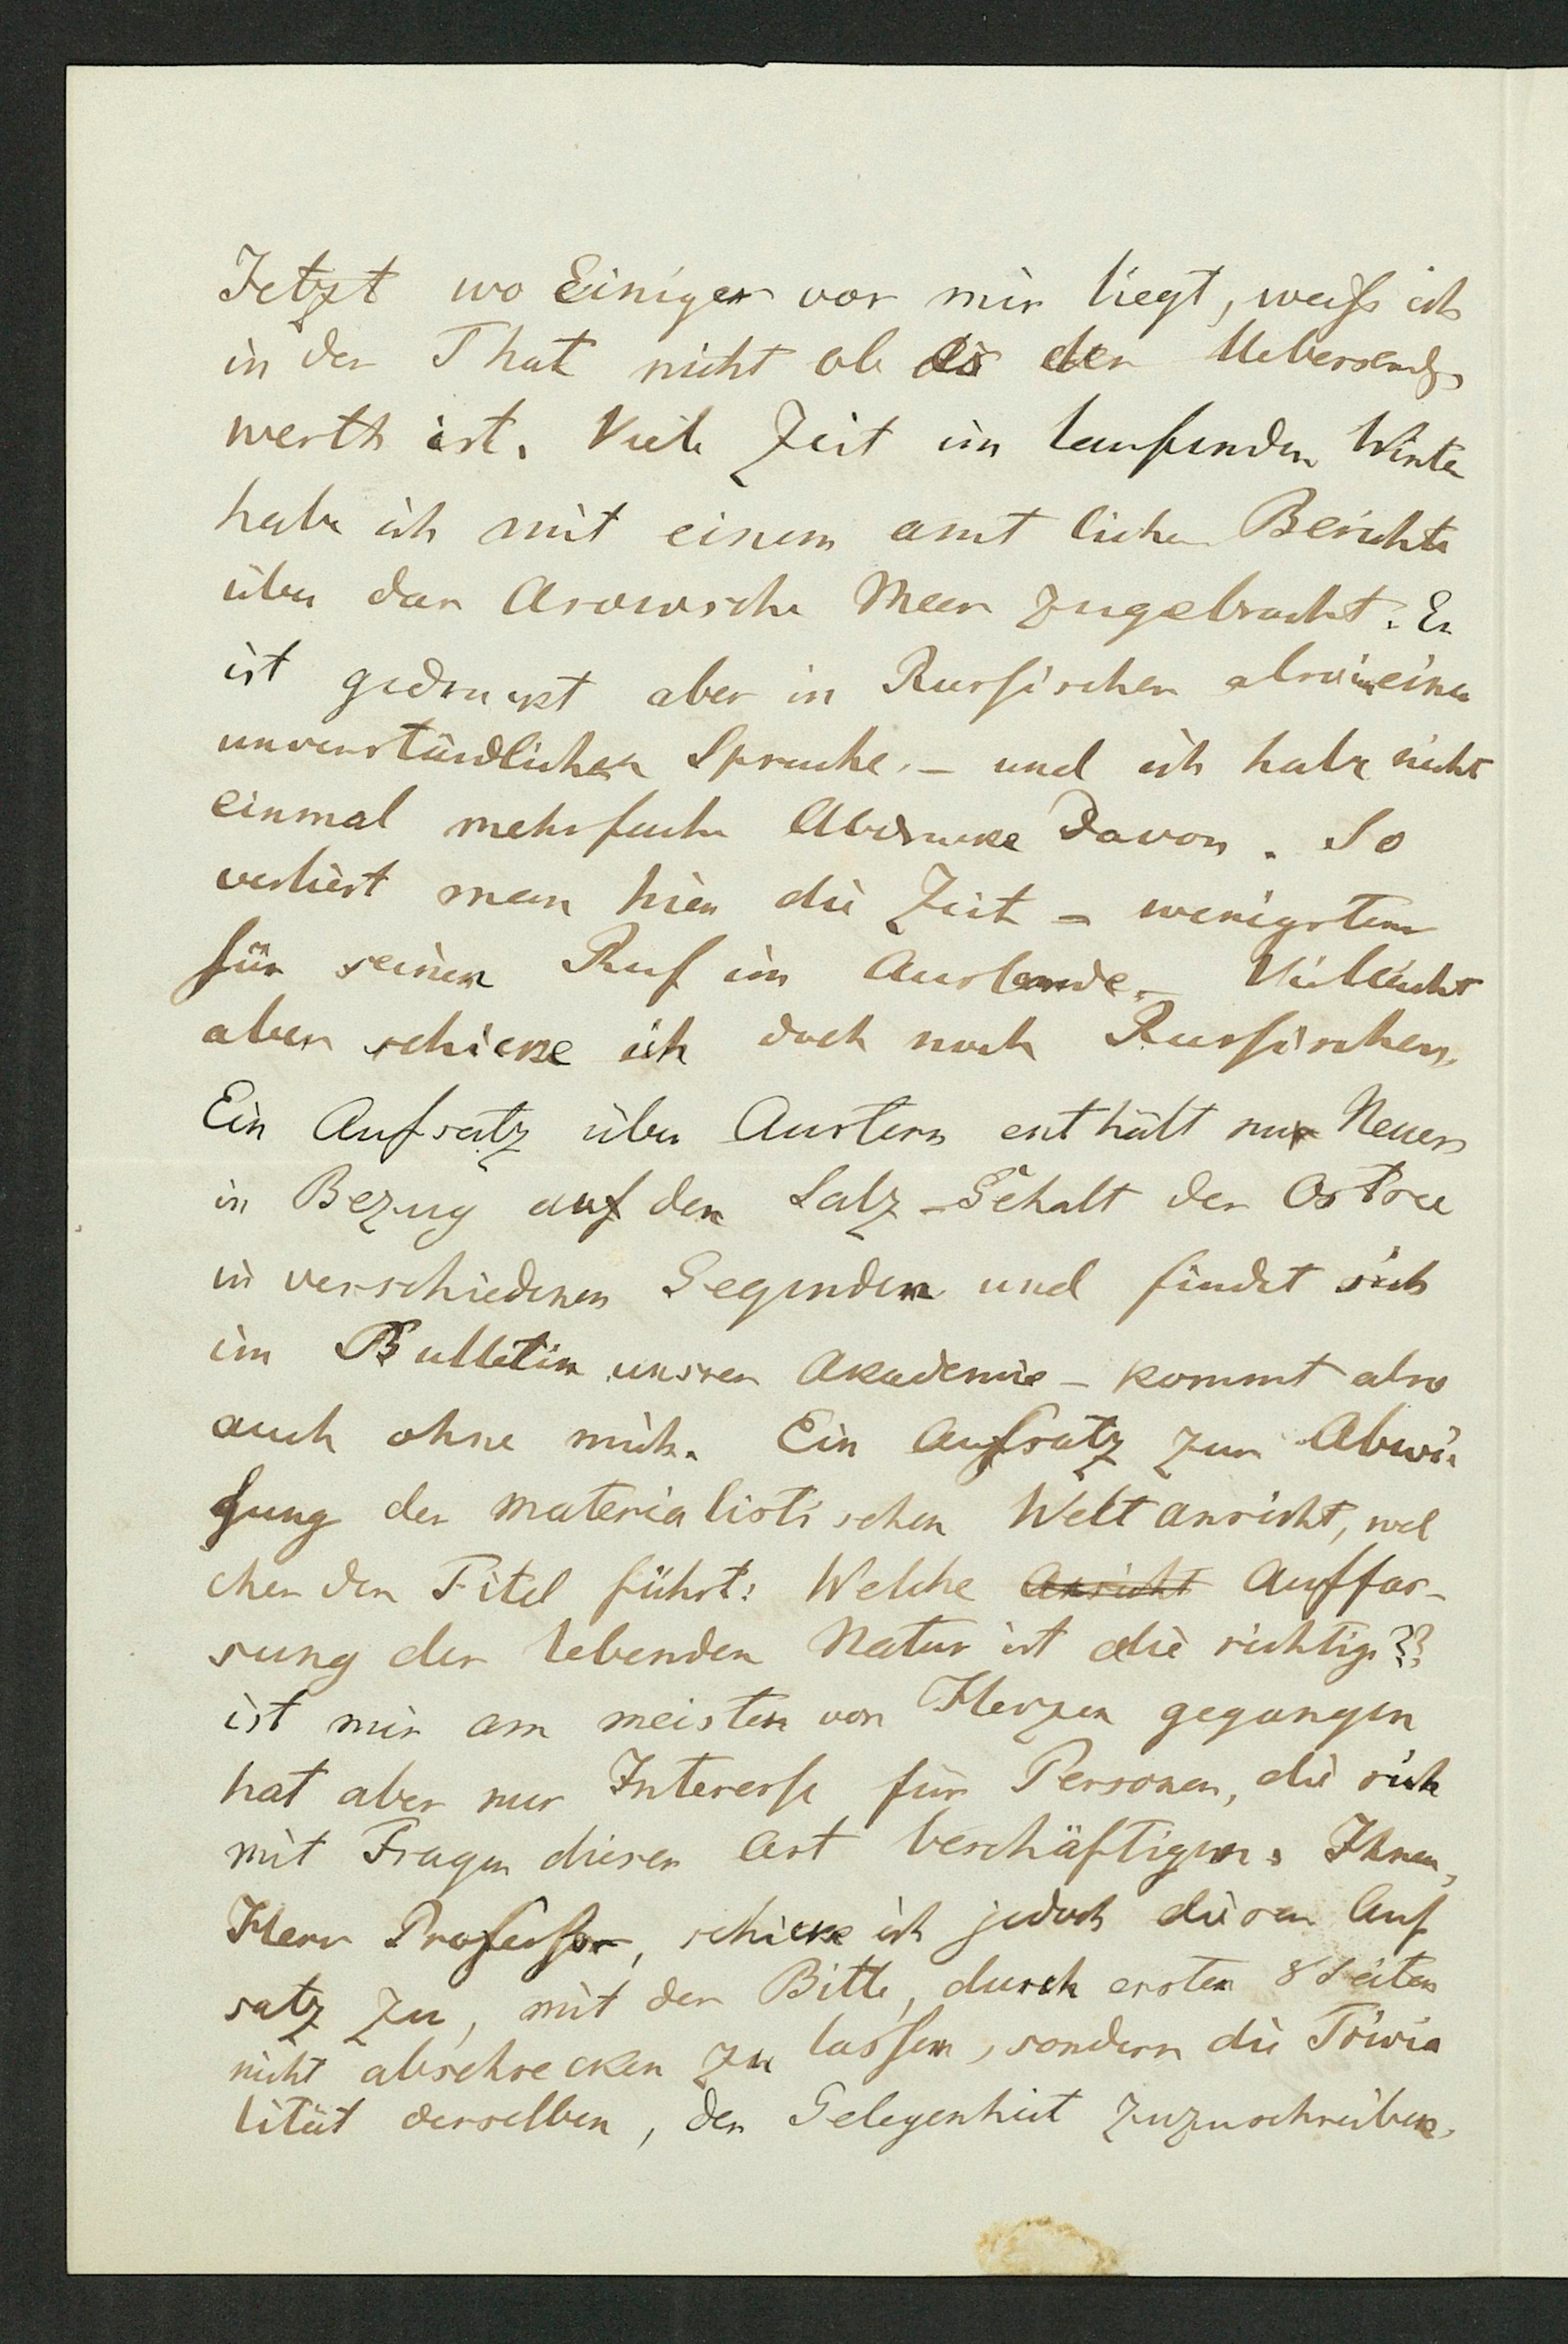 Jetzt wo Einiges vor mir liegt, weiß ich
in der That nicht ob es der Uebersendg
werth ist. Viele Zeit im laufenden Winter
habe ich mit einem amtlichen Berichte
über das Asowsche Meer zugebracht. Er
ist gedruckt aber in Russischer also in einer
unverständlichen Sprache. – und ich habe nicht
einmal mehrfache Abdrucke davon. So
verliert man hier die Zeit – wenigstens
für seinen Ruf im Auslande. – Vielleicht
aber schicke ich doch noch Russisches.
Ein Aufsatz über Austern enthält nur Neues
in Bezug auf den Salz-Gehalt der Ostsee
in verschiedenen Gegenden und findet sich
im Bulletin unsrer Akademie – kommt also
auch ohne mich. Ein Aufsatz zur Abwei
sung der materialistischen Weltansicht, wel
cher den Titel führt: Welche Ansicht Auffas-
sung der lebenden Natur ist die richtige??
ist mir am meisten von Herzen gegangen
hat aber nur Interesse für Personen, die sich
mit Fragen dieser Art beschäftigen. Ihnen,
Herr Professor, schicke ich jedoch diesen Auf
satz zu, mit der Bitte, durch ersten 8 Seiten
nicht abschrecken zu lassen, sondern die Trivia
lität derselben, der Gelegenheit zuzuschreiben.